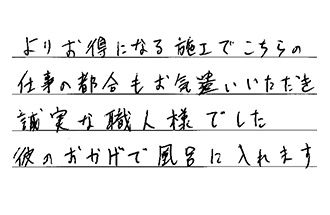 よりお得になる施工でこちらの
仕事の都合もお気遣いいただき
誠実な職人様でした
彼のおかげで風呂に入れます